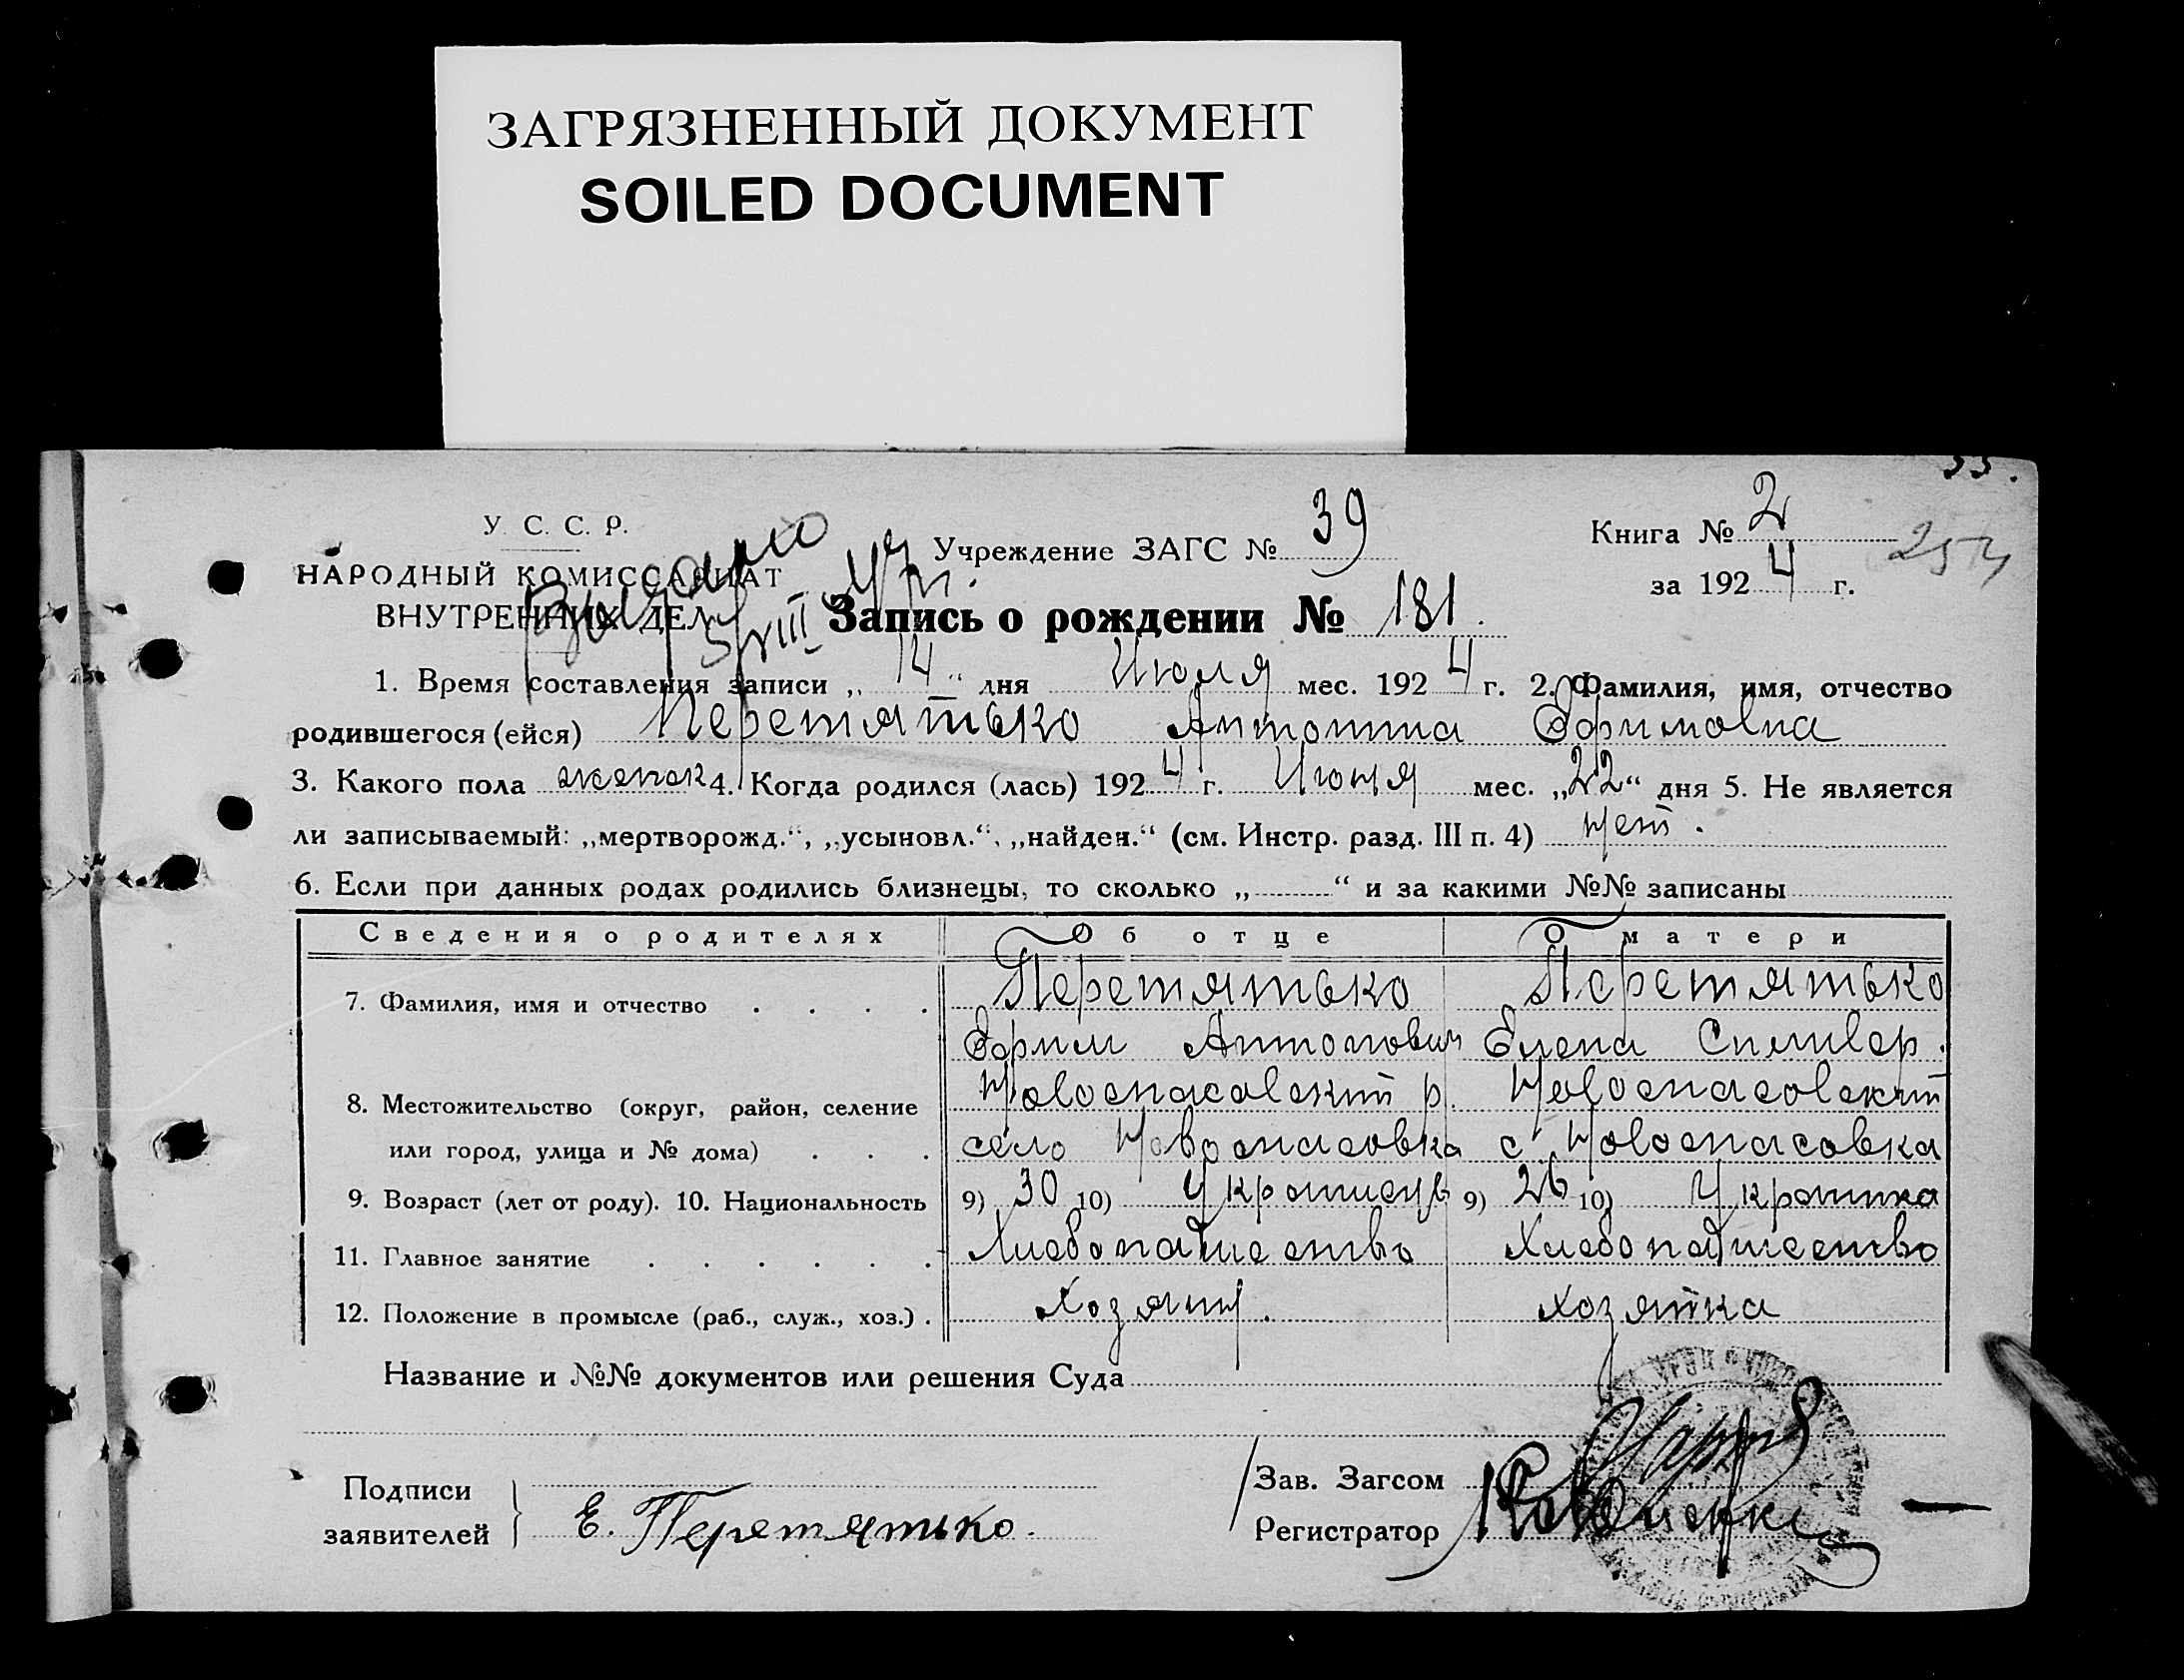 ЗАГРЯЗНЕННЫЙ ДОКУМЕНТ
SOILED DOCUMENT
У. С. С. Р.
НАРОДНЫЙ КОМИССАРИАТ
ВНУТРЕННИХ ДЕЛ
Выдано
5/VIII 47 г.
Учреждение ЗАГС № 39
Книга № 2
за 1924 г.
Запись о рождении № 181.
1. Время составления записи „14“ дня Июля мес. 1924 г. 2. Фамилия, имя, отчество
родившегося (ейся) Перетятько Антонина Ефимовна
3. Какого пола женск 4. Когда родился (лась) 1924 г. Июня мес. „22“ дня 5. Не является
ли записываемый: „мертворожд.“, „усыновл.“, „найден.“ (см. Инстр. разд. III п. 4) Нет.
6. Если при данных родах родились близнецы, то сколько „ “ и за какими №№ записаны
Сведения о родителях Об отце О матери
7. Фамилия, имя и отчество . . . . Перетятько Перетятько
Ефим Антонович Елена Силивер.
8. Местожительство (округ, район, селение Новоспасовский р. Новоспасовский
или город, улица и № дома) . . . село Новоспасовка с. Новоспасовка
9. Возраст (лет от роду). 10. Национальность 9) 30 10) Украинец 9) 26 10) Украинка
11. Главное занятие . . . . . . Хлебопашество Хлебопашество
12. Положение в промысле (раб., служ., хоз.) . Хозяин. хозяйка
Название и №№ документов или решения Суда
Подписи
заявителей
Е. Перетятько.
Зав. Загсом
Регистратор